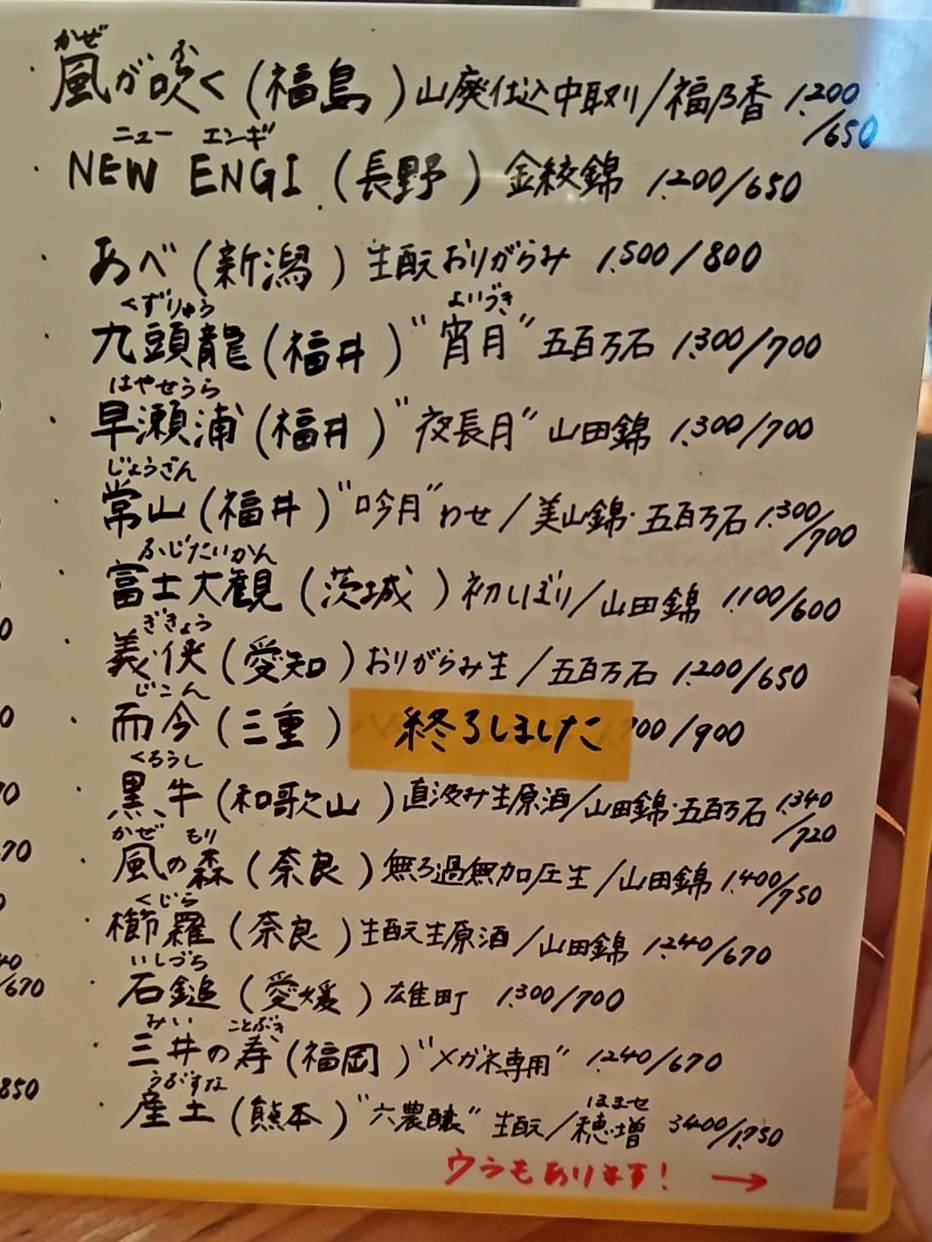 かぜ ふ
・風が吹く(福島)山廃仕込中取り/福乃香 1.200/650
ニュー エンギ
・NEW ENGI (長野) 金紋錦 1.200/650
・あべ(新潟) 生酛おりがらみ 1.500/800
くずりゅう よいづき
・九頭龍(福井)"宵月"五百万石 1.300/700
はやせうら
・早瀬浦(福井)"夜長月"山田錦 1.300/700
じょうざん
・常山(福井)"吟月"わせ/美山錦・五百万石 1.300/700
ふじたいかん
・富士大観(茨城)初しぼり/山田錦 1.100/600
ぎきょう
・義侠(愛知)おりがらみ生/五百万石 1.200/650
じこん
・而今(三重) 終了しました 700/900
くろうし
・黒牛(和歌山)直汲み生原酒/山田錦・五百万石 1.340/720
かぜ もり
・風の森(奈良)無ろ過無加圧生/山田錦 1.400/750
くじら
・櫛羅(奈良)生酛生原酒/山田錦 1.240/670
いしづち
・石鎚(愛媛)雄町 1.300/700
みい ことぶき
・三井の寿(福岡)"メガネ専用" 1.240/670
うぶすな ほませ
・産土(熊本)"六農醸"生酛/穂増 3400/1.750
ウラもあります! →